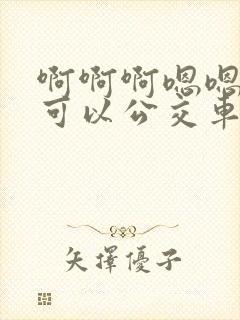 啊啊啊嗯嗯
可以公交车
矢擇優子